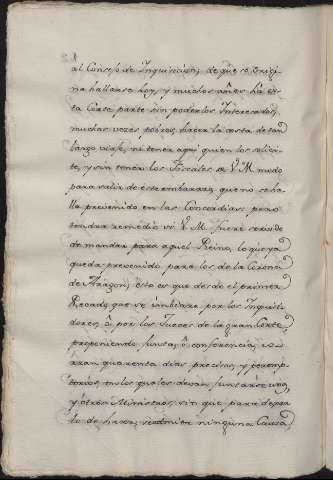 al Consejo de Inquisicion; de que se origi
na hallarse hoy, y muchos años ha en es
ta Corte parte sin poder los Interesados,
muchas vezes pobres, hacer la costa de tan
largo viaje, ni tener aqui quien los solici
te, y sin tener los Fiscales de V. M. modo
para salir de este embarazo, que no se ha
lla prevenido en las Concordias: pero
tendria remedio si V. M. fuere servido
de mandar para aquel Reino, lo que ya
queda prevenido para los de la Corona
de Aragon; esto es que desde el primer
Recado, que se imbiare por los Inquisi
dores, ò por los Jueces de la gran Corte,
proponiendo junta, ò conferencia, co
rran quarenta dias precisos, y peremp
torios, en los quales devan juntarse uno,
y otros Ministros, sin que para dejar
lo de hacer, se admita ninguna Causa